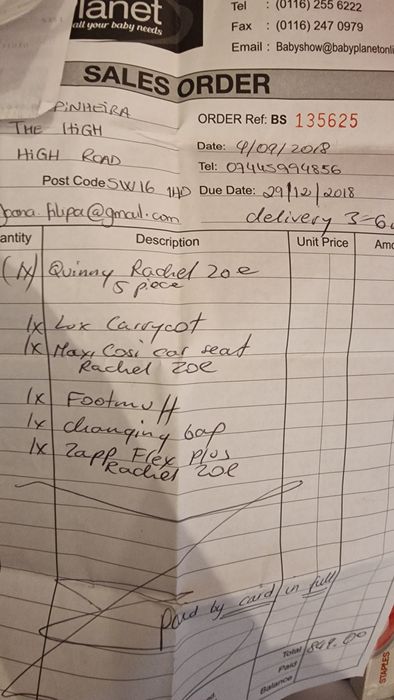 lanet
all your baby needs
Tel : (0116) 255 6222
Fax : (0116) 247 0979
Email : Babyshow@babyplanetonli
SALES ORDER
PINHEIRA
THE HIGH
HIGH ROAD
Post Code SW16 1HD
joana.filipa@gmail.com
ORDER Ref: BS 135625
Date: 9/09/2018
Tel: 07445994856
Due Date: 29/12/2018
delivery 3-6
antity Description Unit Price Amo
(1x) Quinny Rachel Zoe
5 piece
1x Lux Carrycot
1x Maxi Cosi car seat
Rachel Zoe
1x Footmuff
1x changing bap
1x Zapp Flex Plus
Rachel Zoe
Paid by card in full
Total 849.00
Paid
Balance
STAPLES